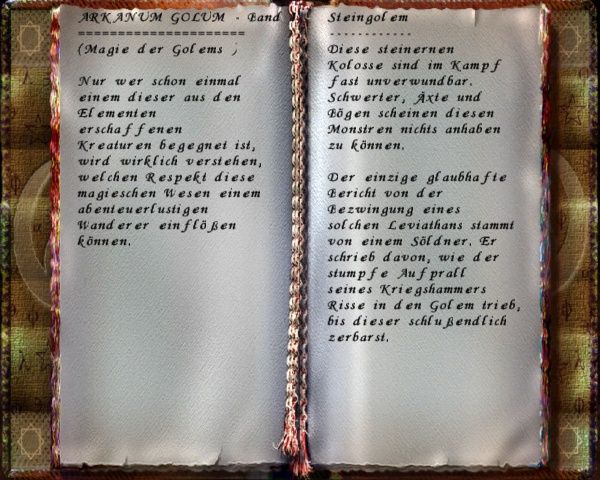 ARKANUM GOLUM - Band
======================
(Magie der Golems )
Nur wer schon einmal
einem dieser aus den
Elementen
erschaffenen
Kreaturen begegnet ist,
wird wirklich verstehen,
welchen Respekt diese
magieschen Wesen einem
abenteuerlustigen
Wanderer einflößen
können.
Steingolem
------------
Diese steinernen
Kolosse sind im Kampf
fast unverwundbar.
Schwerter, Äxte und
Bögen scheinen diesen
Monstren nichts anhaben
zu können.
Der einzige glaubhafte
Bericht von der
Bezwingung eines
solchen Leviathans stammt
von einem Söldner. Er
schrieb davon, wie der
stumpfe Aufprall
seines Kriegshammers
Risse in den Golem trieb,
bis dieser schlußendlich
zerbarst.